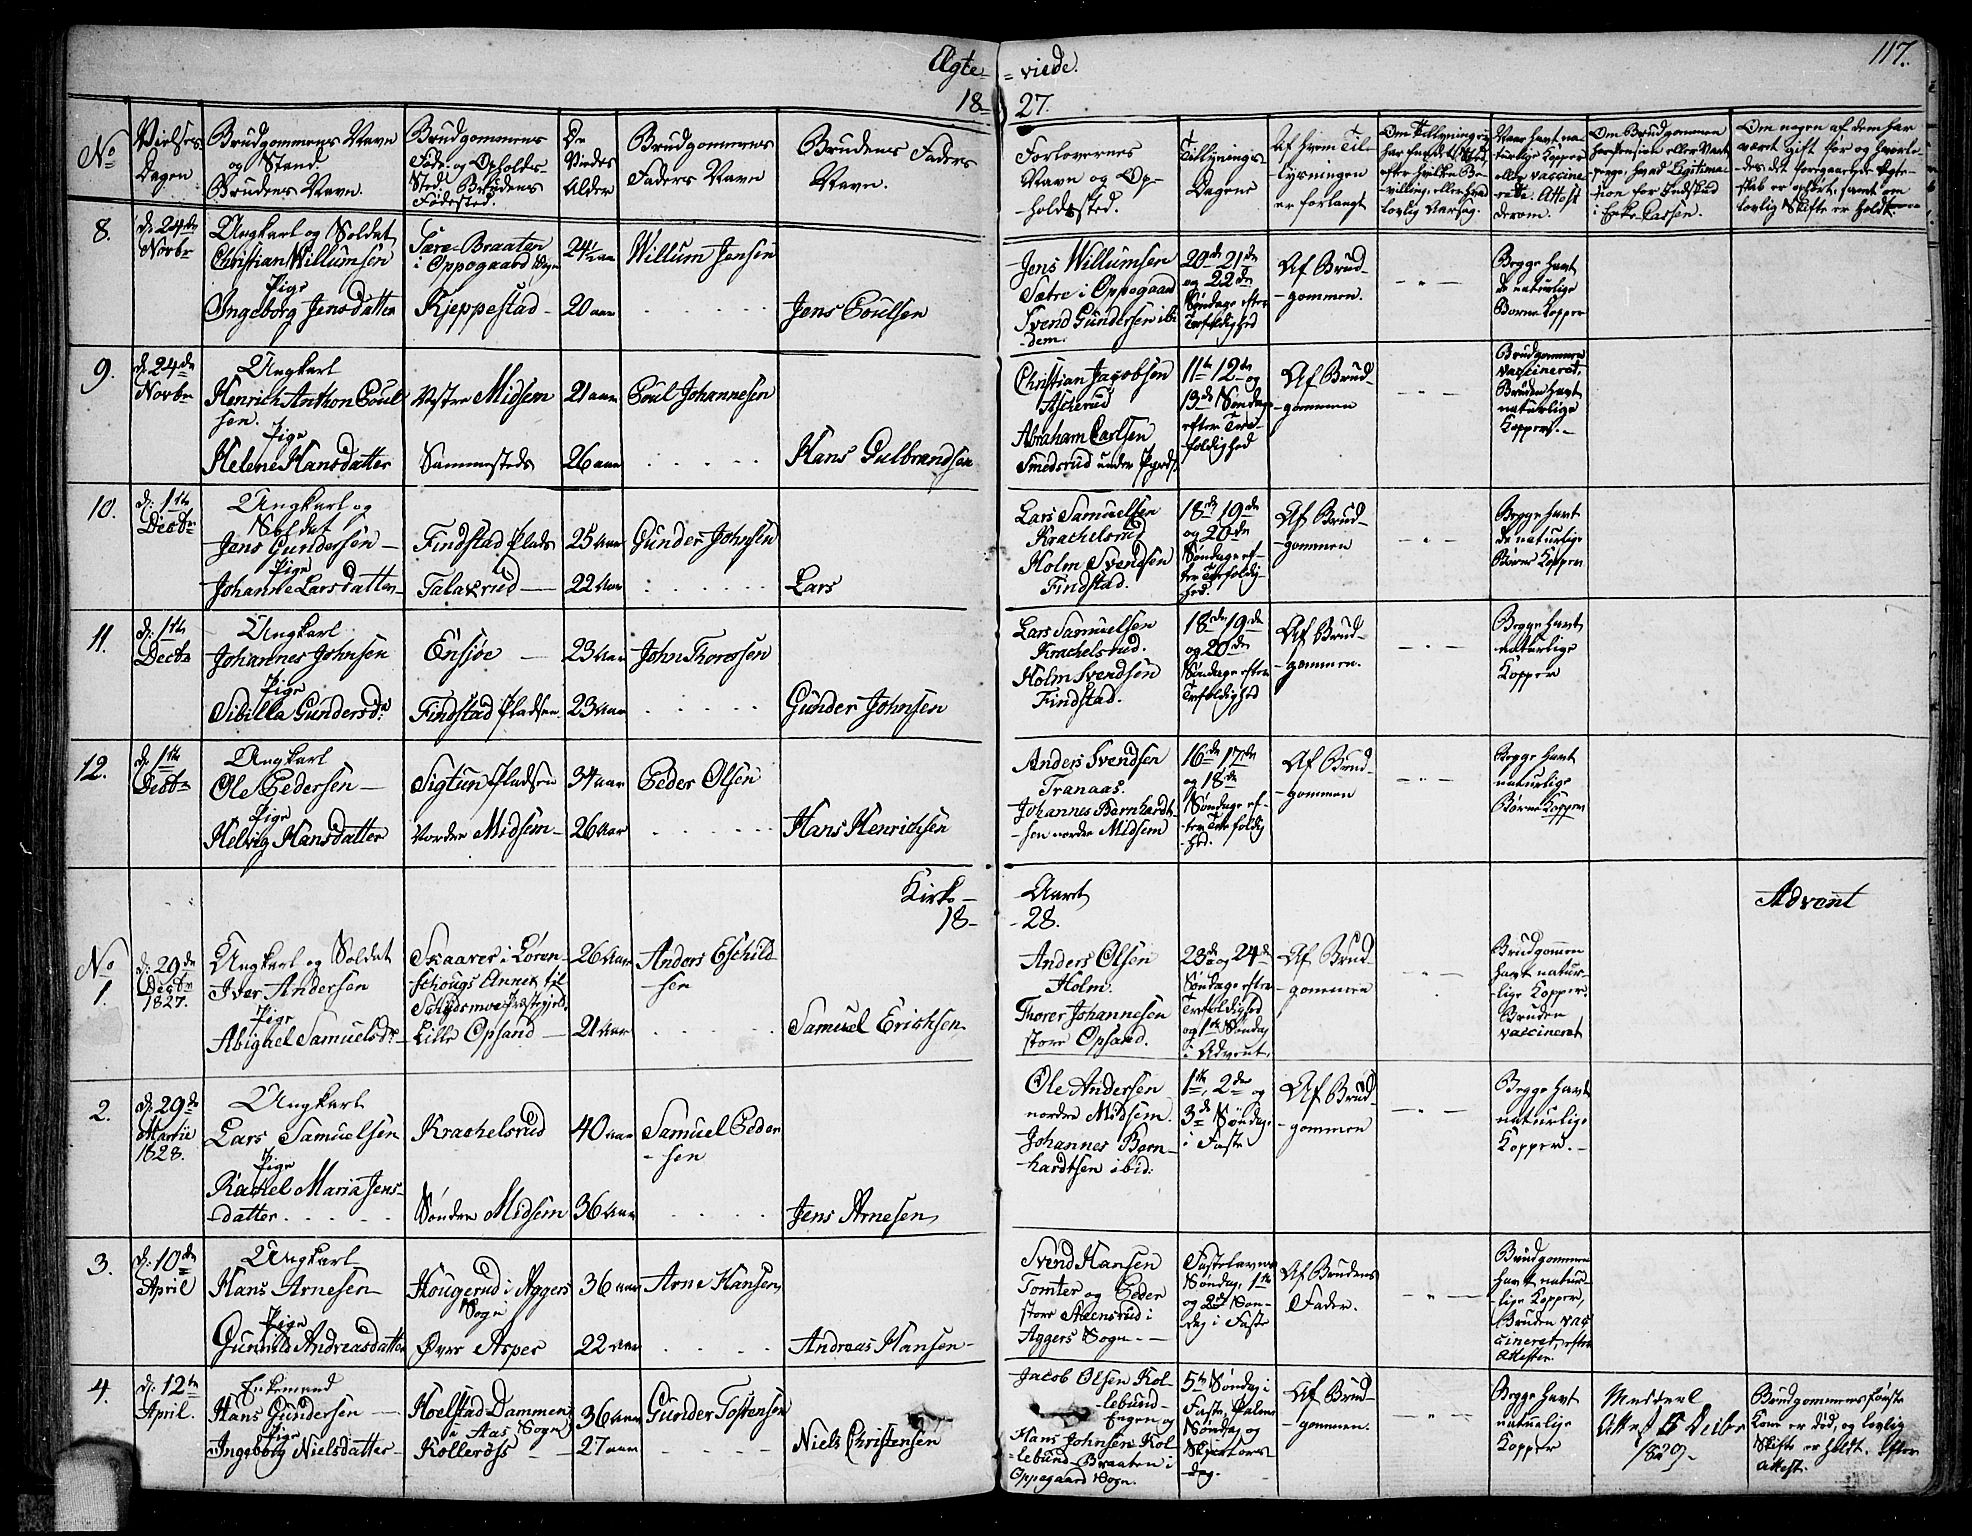 Ægte- -viede. 117.
18- 27.
No
Vielses Dagen.
Brudgommens Navn og Stand Brudens Navn.
Brudgommens Føde- og Opholds-Sted og Brudens Fødested.
De Viedes Alder
Brudgommens Faders Navn
Brudens Faders Navn.
Forlovernes Navn og Op-holdssted.
Tillysnings-Dagene
Af hvem Til-lysningen er forlangt
Om Tillysning ei har fundet Sted efter hvilken Be-villing, eller hvad lovlig Aarsag.
Naar havt na-turlige Kopper eller vaccine-rede. Attest derom.
Om Brudgommen har Pension eller Vart-penge, hvad Legitima-tion for Indskud i Enke-Cassen.
Om nogen af dem har været gift før og hvorle-des det foregaaende Ægte-skab er ophørt, samt om lovlig Skifte er holdt.
8. d: 24de Novbr
Ungkarl og Soldat
Christian Willumsen
Pige
Ingeborg Jensdatter
Tære-Braaten i Oppegaard Sogn
Kjeppestad -
24½ aar
20 aar
Willum Jensen
Jens Poulsen
Jens Willumsen Sætre i Oppegaard
Svend Gundersen ibi-dem.
20de 21de og 22de Søndage efter Trefoldighed
Af Brud-gommen.
- " -
Begge havt de naturlige Børne Kopper
9. d. 24de Novbr
Ungkarl
Henrich Anthon Poul-sen.
Pige
Helene Hansdatter
Vestre Midsem
Sammesteds
21 aar
26 aar
Poul Johannesen
Hans Gulbrandsen
Christian Jacobsen Ascherud
Abraham Carlsen Smedsrud under
11te 12te og 13de Søndag efter Tre-foldighed
Af Brud-gommen
- " -
Brudgommen vaccineret, Bruden havt naturlige Kopper. -
10. d: 1te Decbr
Ungkarl og Soldat
Jens Gundersen -
Pige
Johanne Larsdatter
Findstad Plads
Talaxrud -
25 Aar
22 Aar
Gunder Johnsen
Lars
Lars Samuelsen Krachelsrud
Holm Svendsen Findstad.
18de 19de og 20de Søndage ef-ter Trefoldig-hed.
Af Brud-gommen
- " -
Begge havt de naturlige Børne Kopper
11. d: 1te Decbr
Ungkarl.
Johannes Johnsen
Pige
Sibilla Gundersdr
Ensjøe -
Findstad Pladsen.
23 Aar
23 Aar
John Thoressen
Gunder Johnsen
Lars Samuelsen Krachelsrud.
Holm Svendsen Findstad.
18de 19de og 20de Søndage efter Trefoldighed
Af Brud-gommen.
- " -
Begge havt naturlige Kopper
12. d. 1te Decbr
Ungkarl
Ole Pedersen -
Pige
Helvig Hansdatter
Sigtun Pladsen
Nordre Midsem -
34 aar
26 Aar
Peder Olsen
Hans Henrichsen
Anders Svendsen Tranaas.
Johannes Bernhardt-sen nordre Midsem
16de 17de og 18de Søndage ef-ter Trefoldig-hed.
Af Brud-gommen
- " -
Begge havt naturlige Børne Kopper
Kirke- Aaret Advent
18- -28.
No 1. d: 29de Decbr 1827.
Ungkarl og Soldat
Iver Andersen
Pige
Abighel Samuelsdr
Skaarer i Løren-schougs Annex til Schydsmoe Præstegjeld.
Lille Opsand -
26 Aar
21 Aar
Anders Eschild-sen
Samuel Erichsen
Anders Olsen Holm.
Thorer Johannesen store Opsand.
23de og 24de Søndage efter Trefoldighed og 1te Søndag i Advent.
Af Brud-gommen
- " -
Brudgommen havt natur-lige Kopper. Bruden vaccineret
2. d: 29de Martii 1828.
Ungkarl
Lars Samuelsen
Pige
Rachel Maria Jens-datter.
Krachelsrud
Søndre Midsem
40 aar
36 Aar
Samuel Peder-sen
Jens Arnesen
Ole Andersen nordre Midsem.
Johannes Bern-hardtsen ibid:
1te, 2de og 3de Søndag i Faste
Af Brud-gommen
- " -
Begge havt naturlige Kopper. -
3. d: 10de April
Ungkarl
Hans Arnesen -
Pige
Gunnild Andreasdatter
Hougerud i Aggers Sogn
Øvre Asper
36 aar
22 aar
Arne Hansen
Andreas Hansen -
Svend Hansen Tomter og Peder store Steensrud i Aggers Sogn. -
Fastelavns Søndag, 1te og 2de Søn-dag i Faste
Af Brudens Fader.
- " -
Brudgommen havt natur-lige Kopper, Bruden vac-cineret, efter Attester.
4. d: 12te April.
Enkemand
Hans Gundersen -
Pige
Ingeborg Nielsdatter -
Hoelstad-Dammen i Aas Sogn
Kolleross -
36 Aar
27 aar
Gunder Tostensen
Niels Christensen
Jacob Olsen Kol-lebund-Engen og
Hans Johnsen Kol-lebund-Braaten i Oppegaard Sogn.
5te Søndag i Faste, Palme Søndag og Skjertors-dag.
Af Brud-gommen.
- " -
Begge havt naturlige Kopper
Meddeel Attest 5 Decbr 1829.
Brudgommens første Kone er død, og lovlig Skifte er holdt. efter Attest.